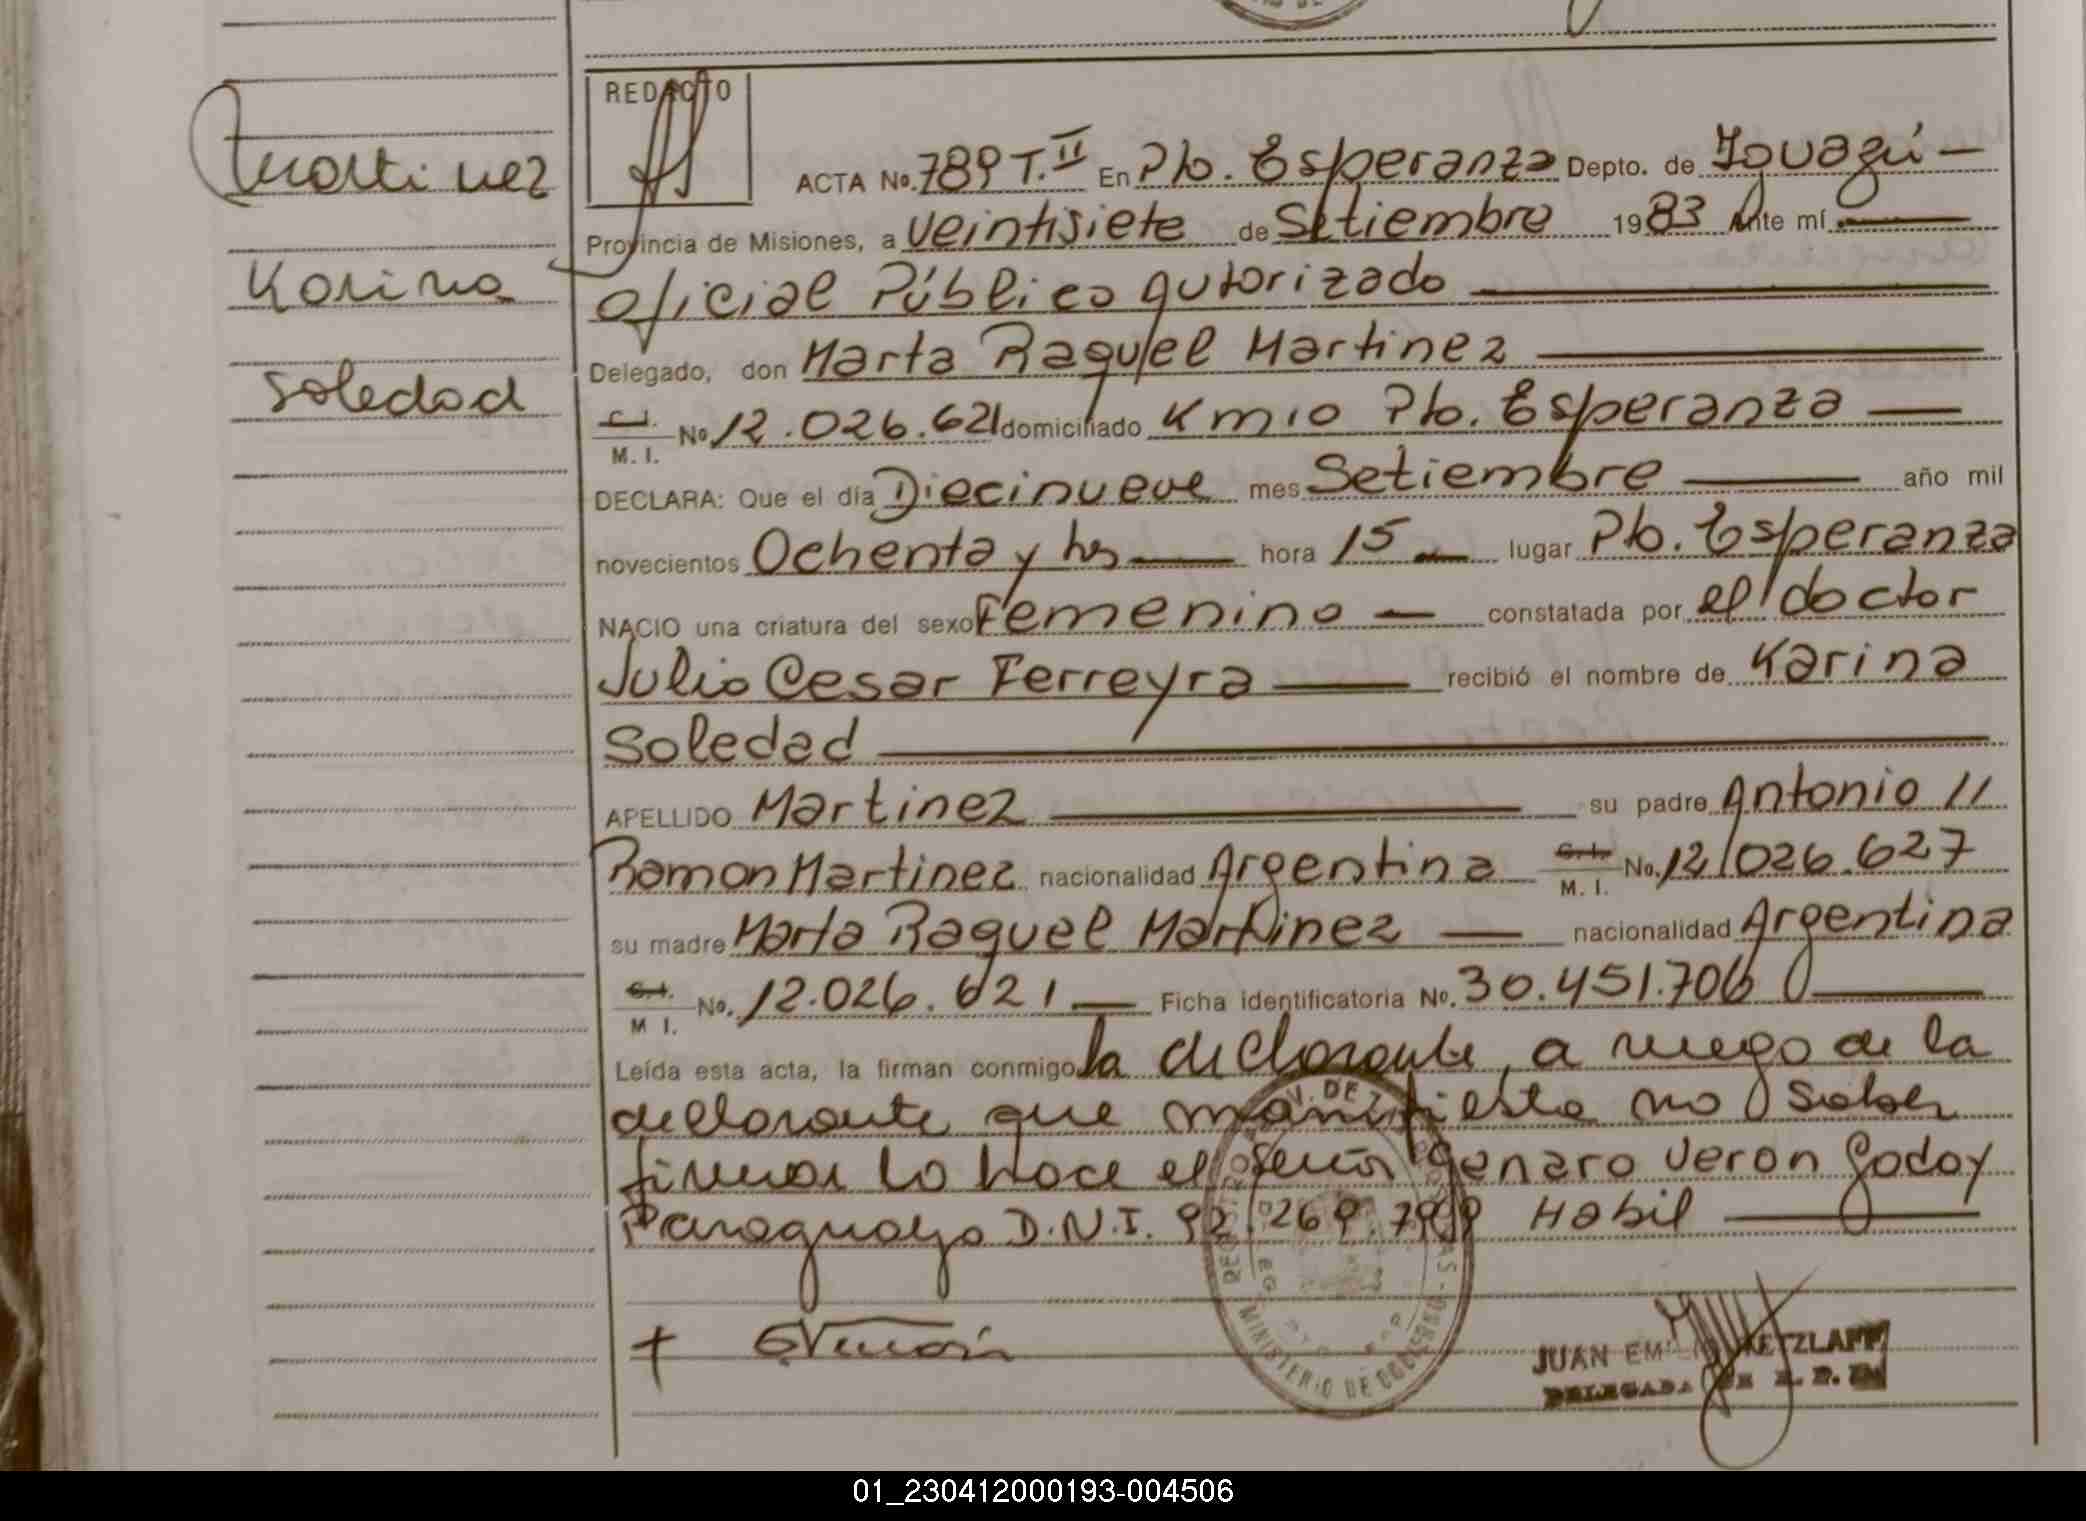 Martinez
Karina
Soledad
REDACTO
ACTA No. 789 T. II En Pto. Esperanza Depto. de Iguazú —
Provincia de Misiones, a veintisiete de Setiembre 1983 Ante mí
oficial Público autorizado
Delegado, don Marta Raquel Martinez
C.I. M. I. No 12.026.621 domiciliado Km 10 Pto. Esperanza
DECLARA: Que el día Diecinueve mes Setiembre año mil
novecientos Ochenta y tres hora 15 lugar Pto. Esperanza
NACIO una criatura del sexo Femenino constatada por el doctor
Julio Cesar Ferreyra recibió el nombre de Karina
Soledad
APELLIDO Martinez su padre Antonio //
Ramon Martinez nacionalidad Argentina C.I. M. I. No. 12.026.627
su madre Marta Raquel Martinez nacionalidad Argentina
C.I. M I. No. 12.026.621 Ficha identificatoria No. 30.451.706
Leída esta acta, la firman conmigo la declarante, a ruego de la
declarante que manifiesta no saber
firmar lo hace el señor Genaro Veron Godoy
Paraguayo D.N.I. 92.269.799 Habil
MINISTERIO DE GOBIERNO
JUAN EM ETZLAFF
DELEGADA
01_230412000193-004506